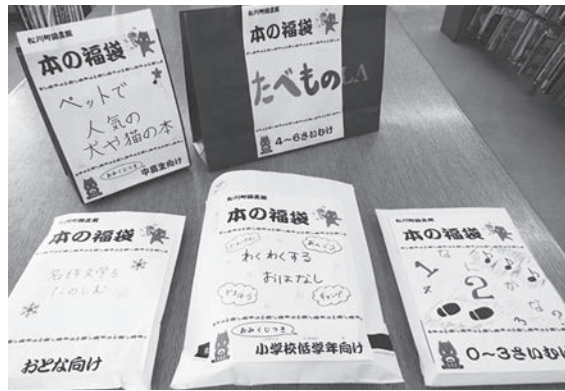 松川町図書館
本の福袋
ペットで
人気の
犬や猫の本
おみくじつき
中高生向け
本の福袋
たべもの
4~6さいむけ
松川町図書館
本の福袋
名作文学を
たのしむ
おとな向け
松川町図書館
本の福袋
わくわくする
おはなし
おみくじつき
小学校低学年向け
松川町図書館
本の福袋
なんか
1 2 3
な?
0~3さいむけ